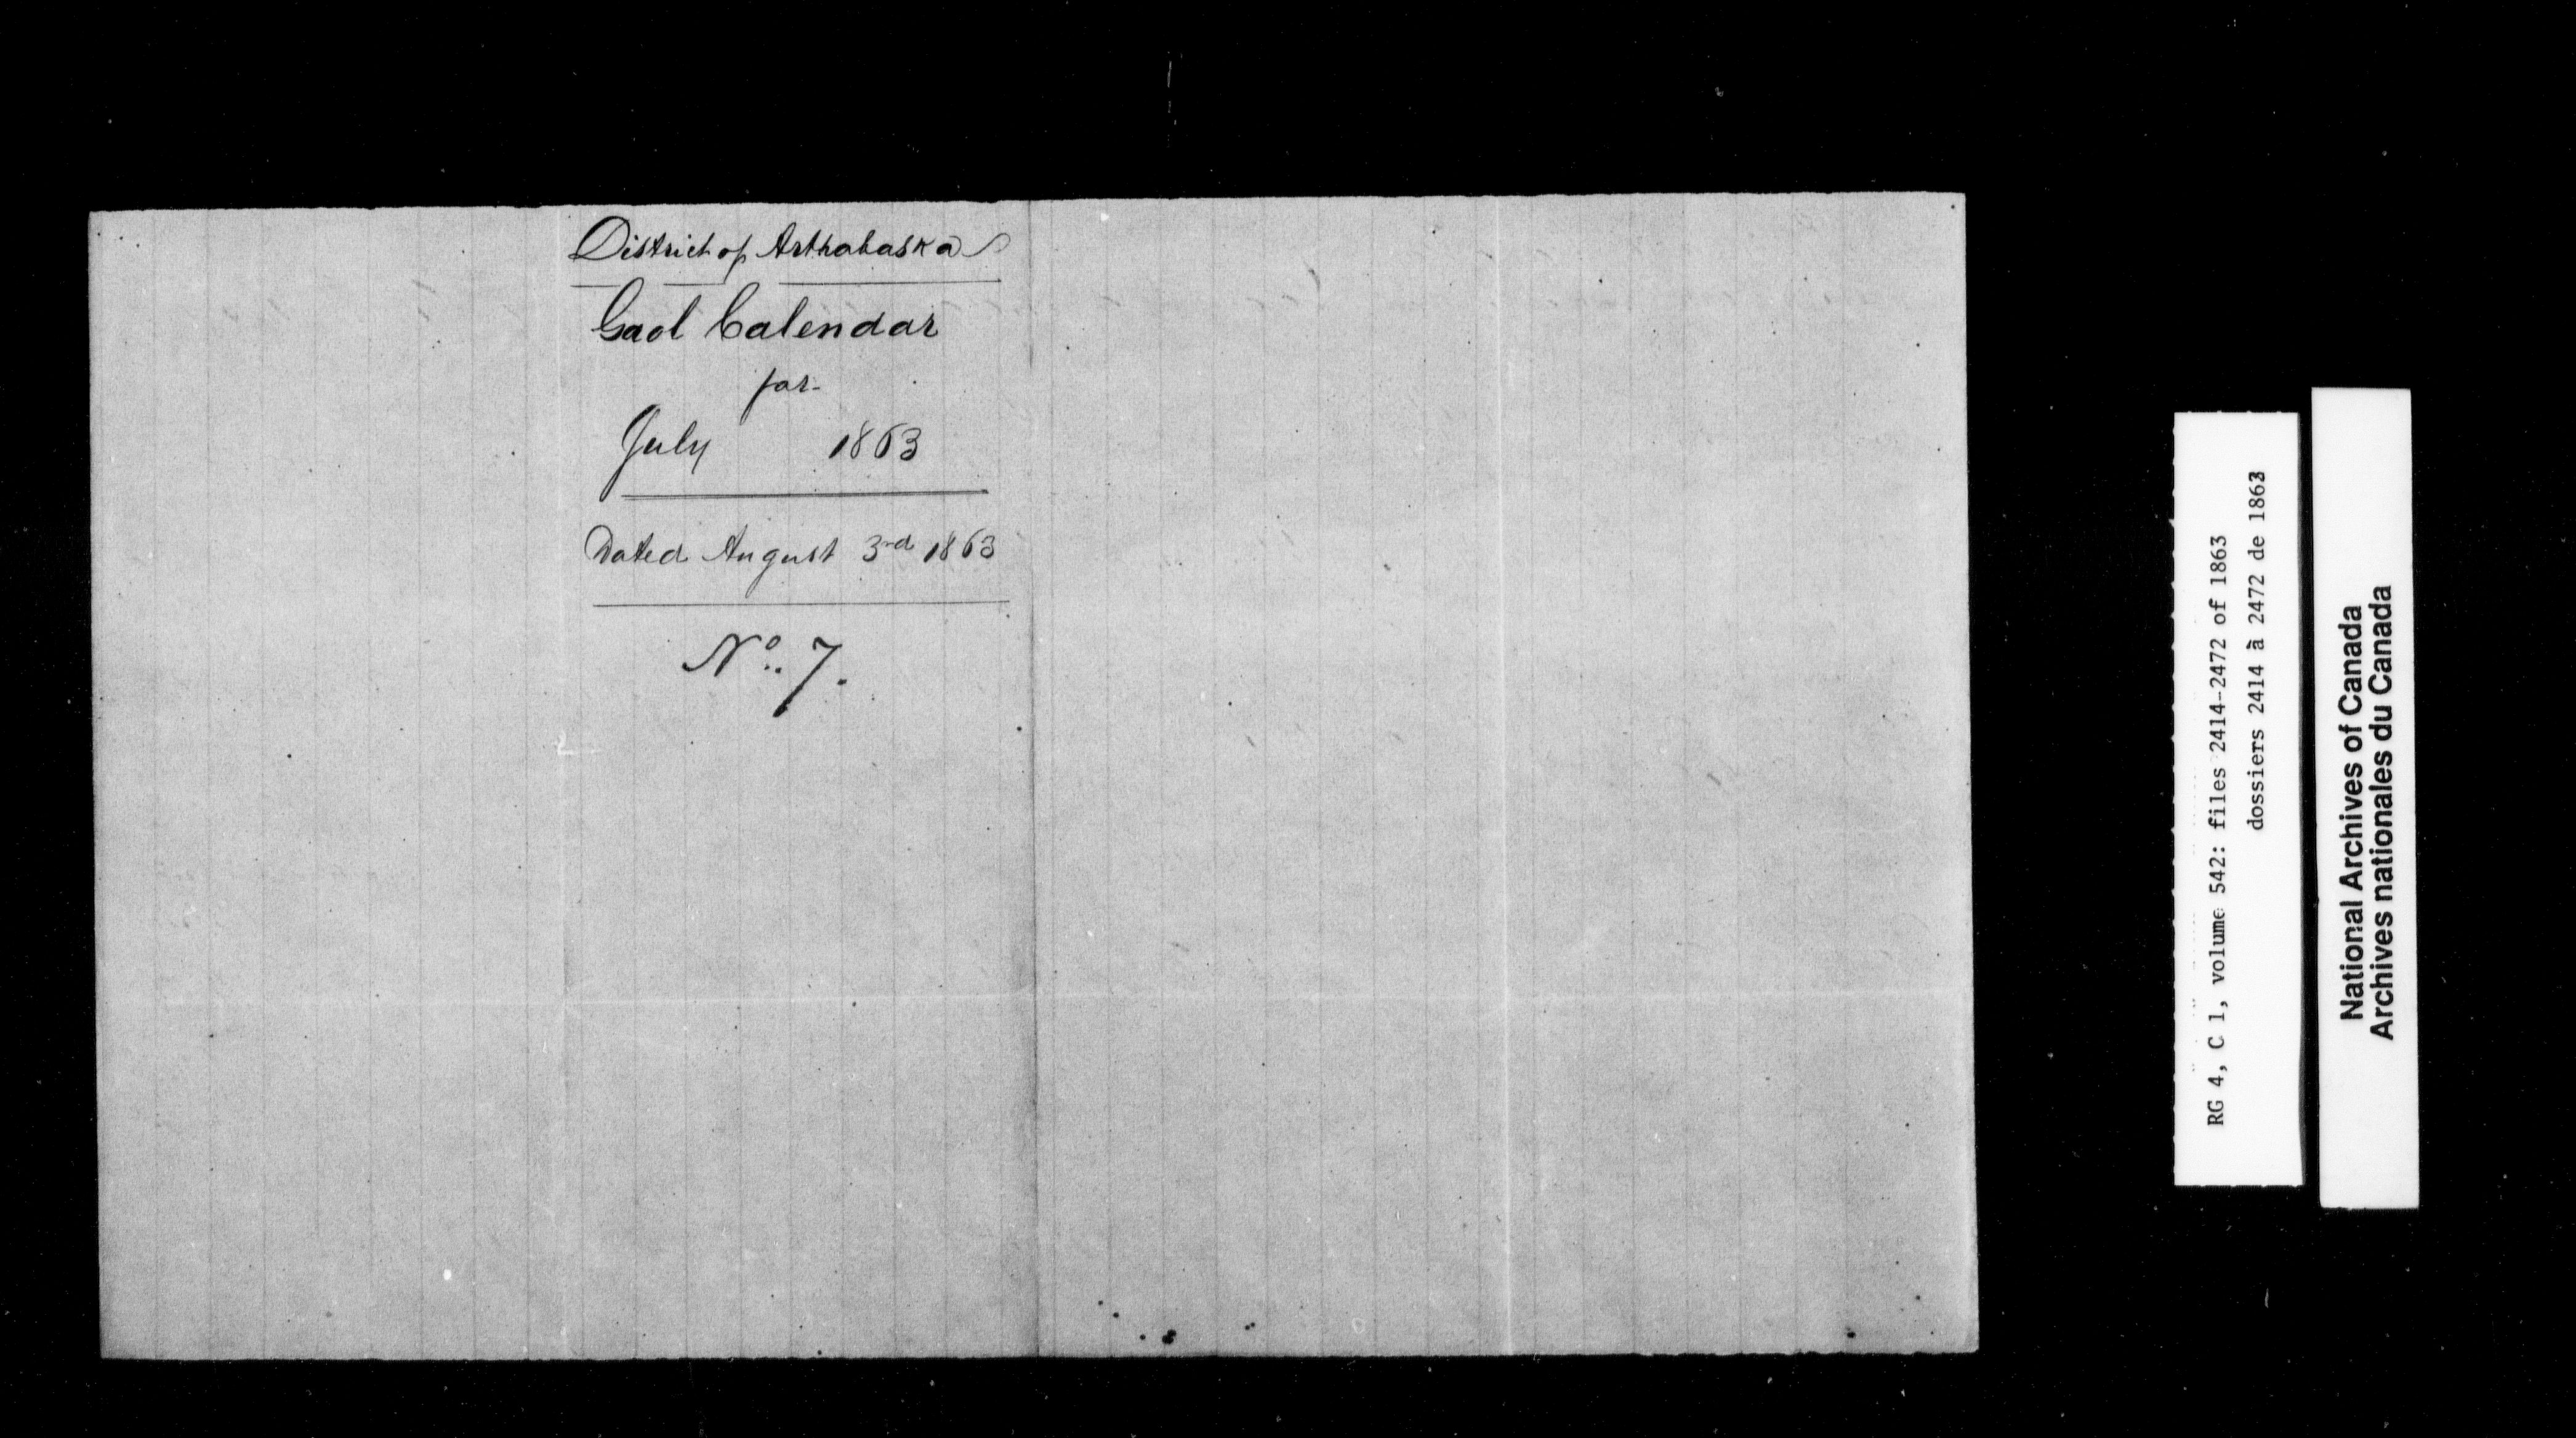 District of Arthabaska
Gaol Calendar
for
July 1863
Dated August 3rd 1863
No. 7.
RG 4, C 1, volume 542: files 2414-2472 of 1863
dossiers 2414 à 2472 de 1863
National Archives of Canada
Archives nationales du Canada